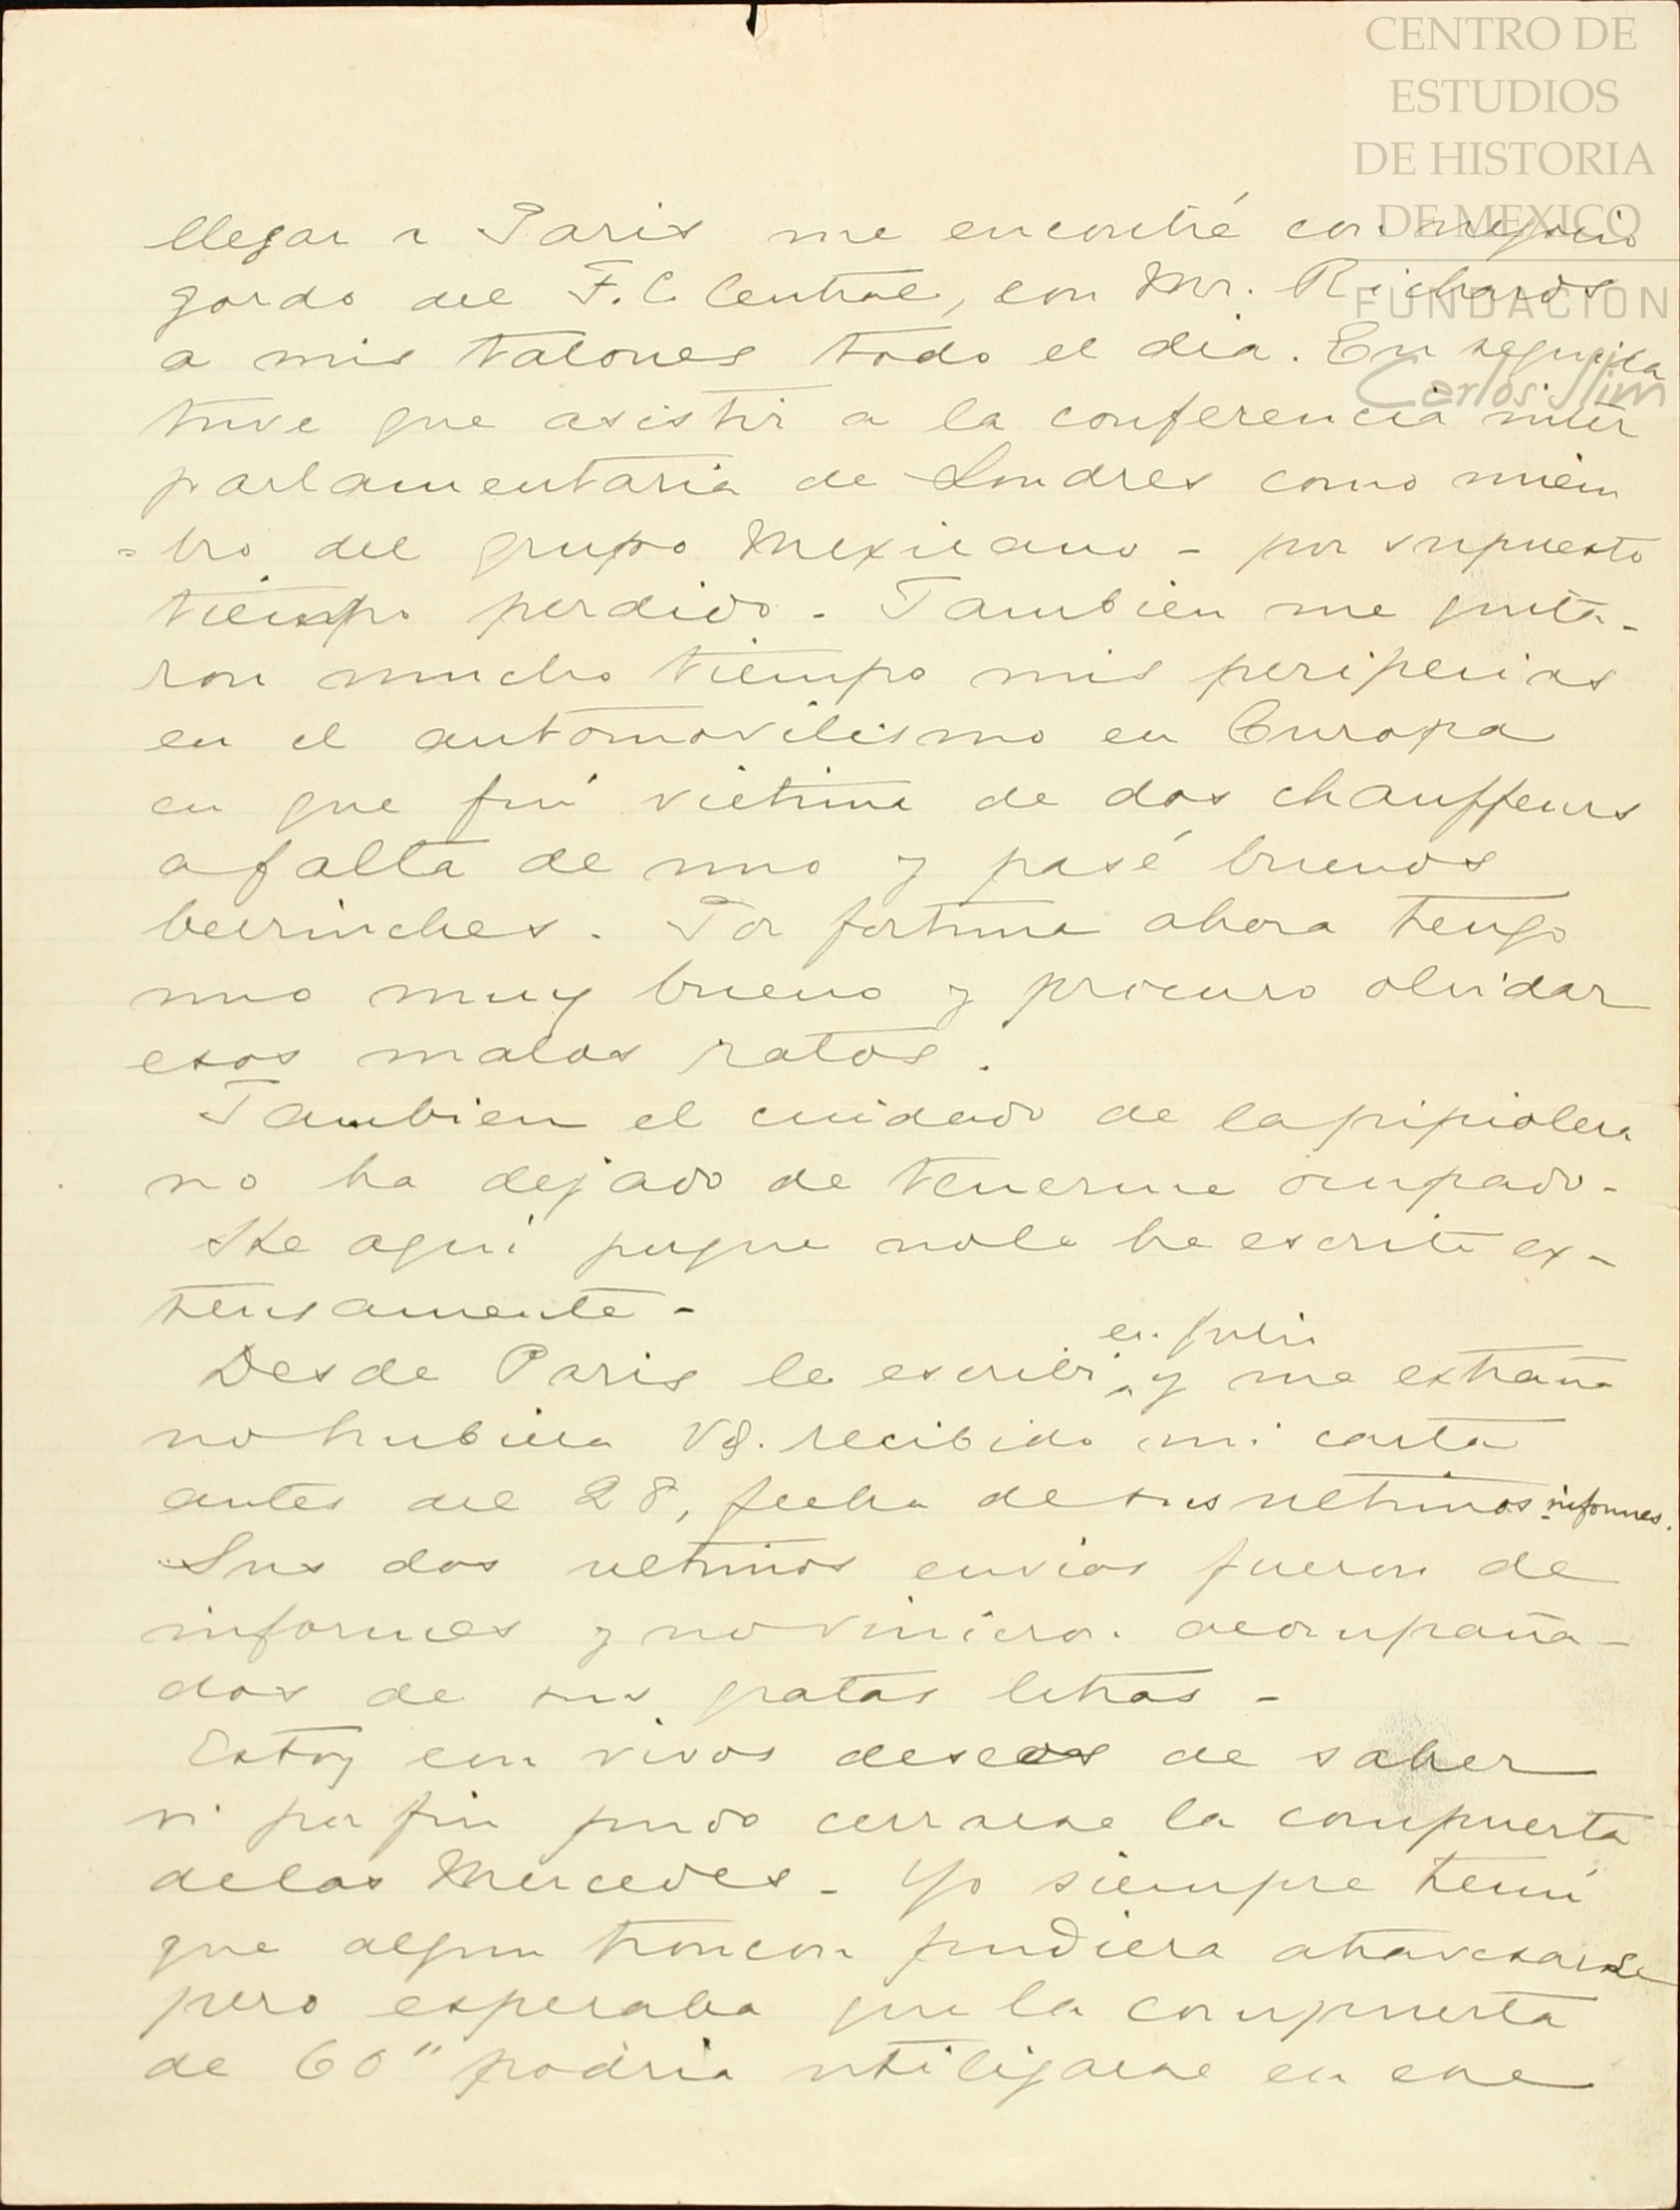 CENTRO DE
ESTUDIOS
DE HISTORIA
DE MEXICO
FUNDACIÓN
Carlos Slim
llegar a Paris me encontré con negocio
gordo del F. C. Central, con Mr. Richards
a mis talones todo el dia. En seguida
tuve que asistir a la conferencia inter
parlamentaria de Londres como miem
=bro del grupo Mexicano - por supuesto
tiempo perdido. Tambien me quita-
ron mucho tiempo mis peripecias
en el automovilismo en Europa
en que fuí victima de dos chauffeurs
a falta de uno y pasé buenos
berrinches. Por fortuna ahora tengo
uno muy bueno y procuro olvidar
esos malos ratos.
Tambien el cuidado de la pipiolera
no ha dejado de tenerme ocupado-
He aquí porque no le he escrito ex-
tensamente-
en Julio
Desde Paris le escribi y me extraña
no hubiera Vd. recibido mi carta
antes del 28, fecha de sus ultimos informes.
Sus dos ultimos envios fueron de
informes y no vinieron acompaña-
dos de sus gratas letras-
Estoy con vivos deseos de saber
si por fin pudo cerrarse la compuerta
de las Mercedes- Yo siempre temí
que algun troncon pudiera atravesarse
pero esperaba que la compuerta
de 60" podria utilizarse en ese